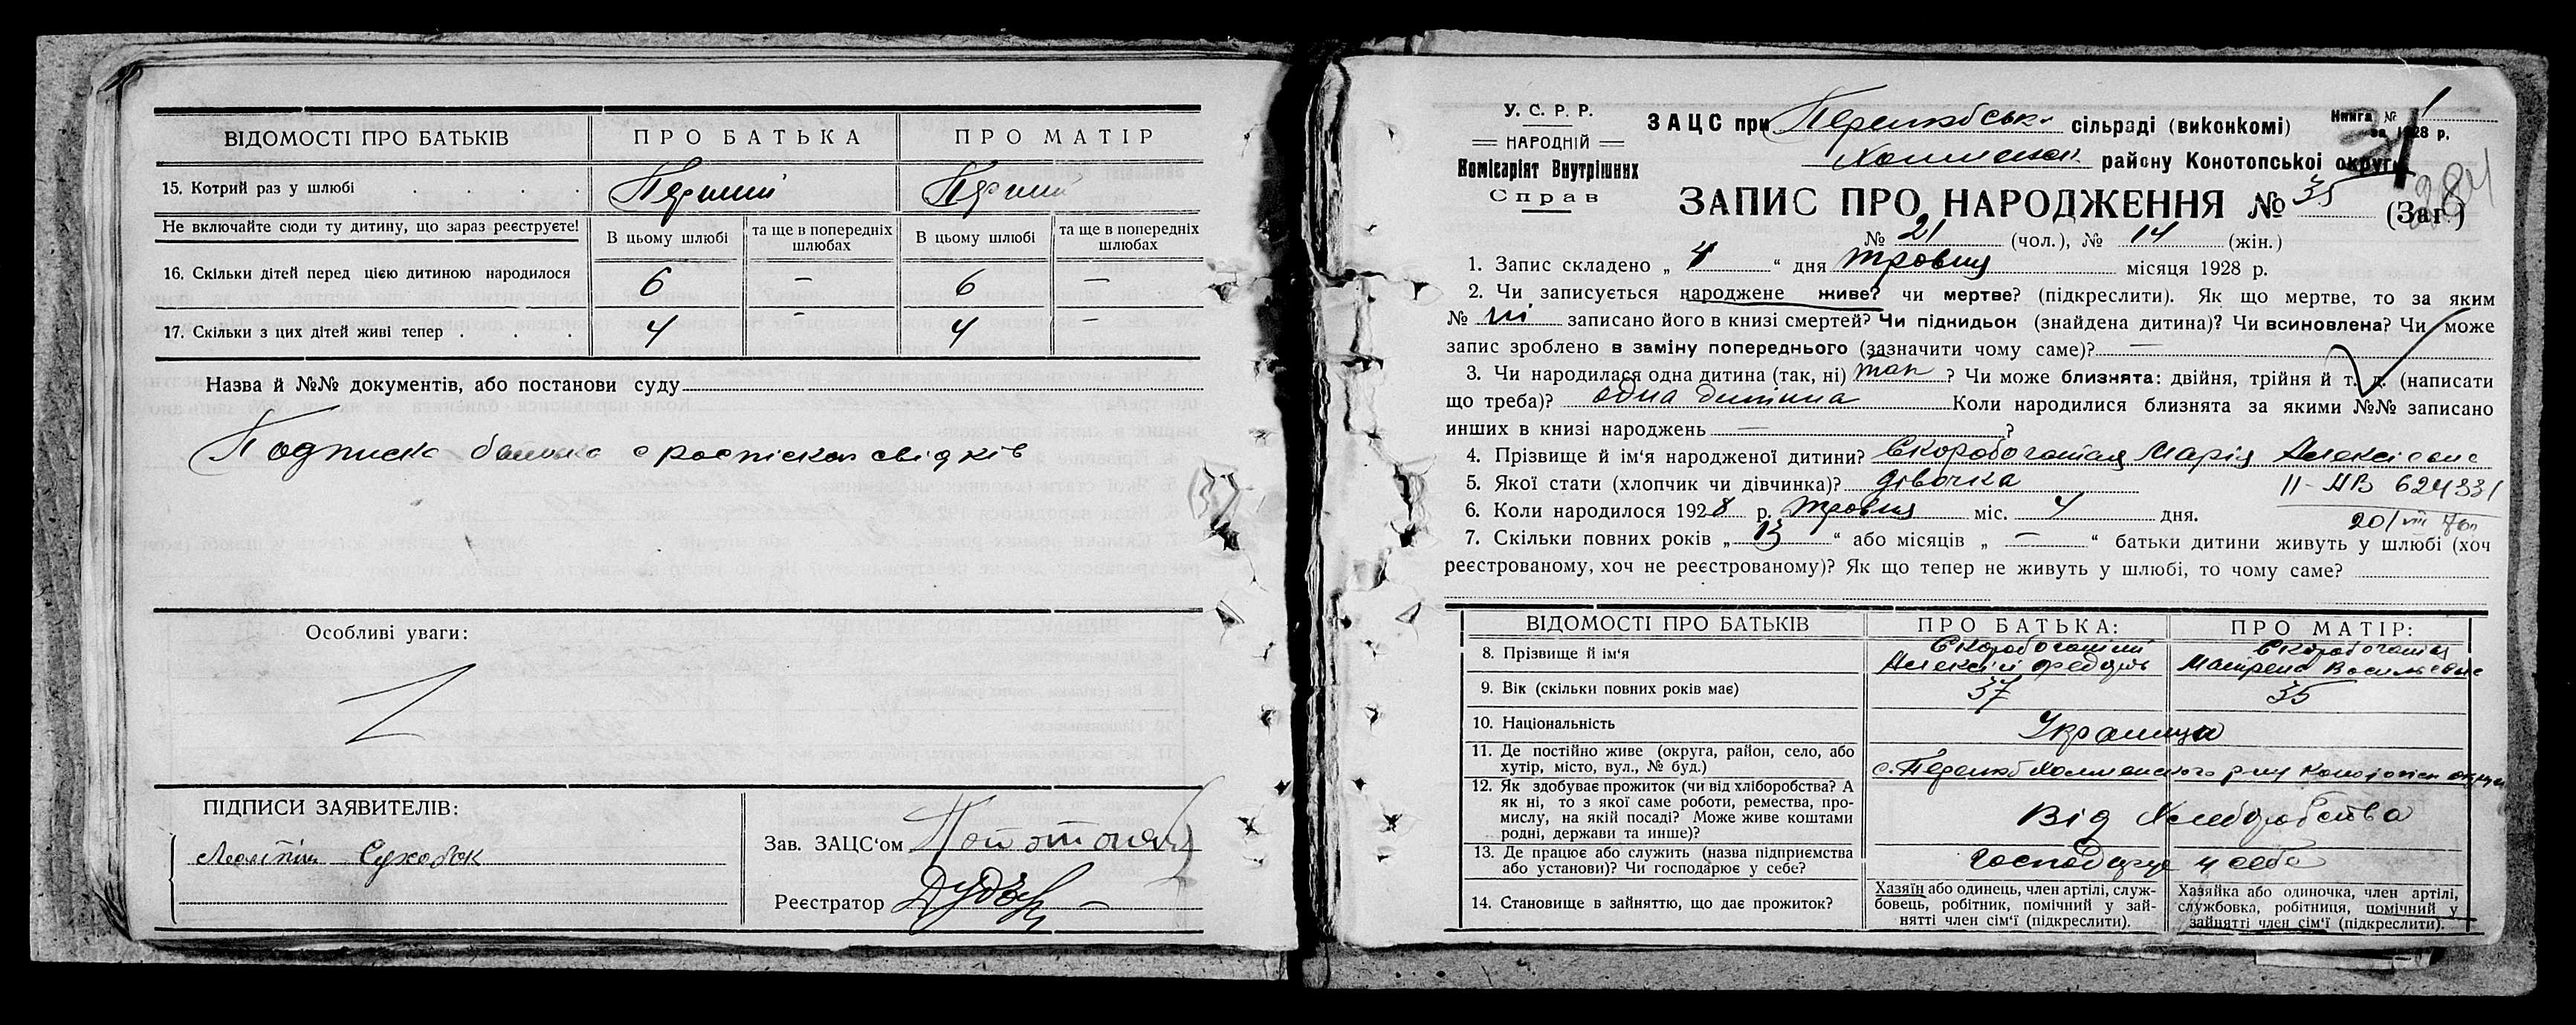 ВІДОМОСТІ ПРО БАТЬКІВ
ПРО БАТЬКА
ПРО МАТІР
15. Котрий раз у шлюбі
Перший
Перший
Не включайте сюди ту дитину, що зараз реєструєте!
В цьому шлюбі
та ще в попередніх шлюбах
В цьому шлюбі
та ще в попередніх шлюбах
16. Скільки дітей перед цією дитиною народилося
6 — 6 —
17. Скільки з цих дітей живі тепер
4 — 4 —
Назва й №№ документів, або постанови суду
Подписка батька с роспіскою свідків
Особливі уваги:
ПІДПИСИ ЗАЯВИТЕЛІВ:
Сухобок
Зав. ЗАЦС'ом
Реєстратор
У. С. Р. Р.
НАРОДНІЙ
Комісаріят Внутрішних
Справ
ЗАЦС при сільраді (виконкомі)
району Конотопської округи
Книга № 1
за 1928 р.
284
ЗАПИС ПРО НАРОДЖЕННЯ № 35 (Заг.)
№ 21 (чол.), № 14 (жін.)
1. Запис складено „ 4 “ дня травня місяця 1928 р.
2. Чи записується народжене живе? чи мертве? (підкреслити). Як що мертве, то за яким
№ записано його в книзі смертей? Чи підкидьок (знайдена дитина)? Чи всиновлена? Чи може
запис зроблено в заміну попереднього (зазначити чому саме)? —
3. Чи народилася одна дитина (так, ні) так ? Чи може близнята: двійня, трійня й т. д. (написати
що треба)? одна дитина Коли народилися близнята за якими №№ записано
инших в книзі народжень — ?
4. Прізвище й ім'я народженої дитини? Скоробогатая Марія Алексіевна
5. Якої стати (хлопчик чи дівчинка)? дівочка
II-НВ 624331
6. Коли народилося 1928 р. травня міс. 4 дня.
20/VIII
7. Скільки повних років „ 13 “ або місяців „ — “ батьки дитини живуть у шлюбі (хоч
реєстрованому, хоч не реєстрованому)? Як що тепер не живуть у шлюбі, то чому саме?
ВІДОМОСТІ ПРО БАТЬКІВ
ПРО БАТЬКА:
ПРО МАТІР:
8. Прізвище й ім'я
Скоробогатий Алексій
Скоробогатая Мотрена Васильевна
9. Вік (скільки повних років має)
37
35
10. Національність
Українца
11. Де постійно живе (округа, район, село, або
хутір, місто, вул., № буд.)
12. Як здобуває прожиток (чи від хліборобства? А
як ні, то з якої саме роботи, ремества, про-
мислу, на якій посаді? Може живе коштами
родні, держави та инше)?
Від Хлеборобства
13. Де працює або служить (назва підприємства
або установи)? Чи господарює у себе?
Господарує у себе
14. Становище в зайняттю, що дає прожиток?
Хазяїн або одинець, член артілі, служ-
бовець, робітник, помічний у зай-
нятті член сім'ї (підкреслити).
Хазяйка або одиночка, член артілі,
службовка, робітниця, помічний у
зайнятті член сім'ї (підкреслити).